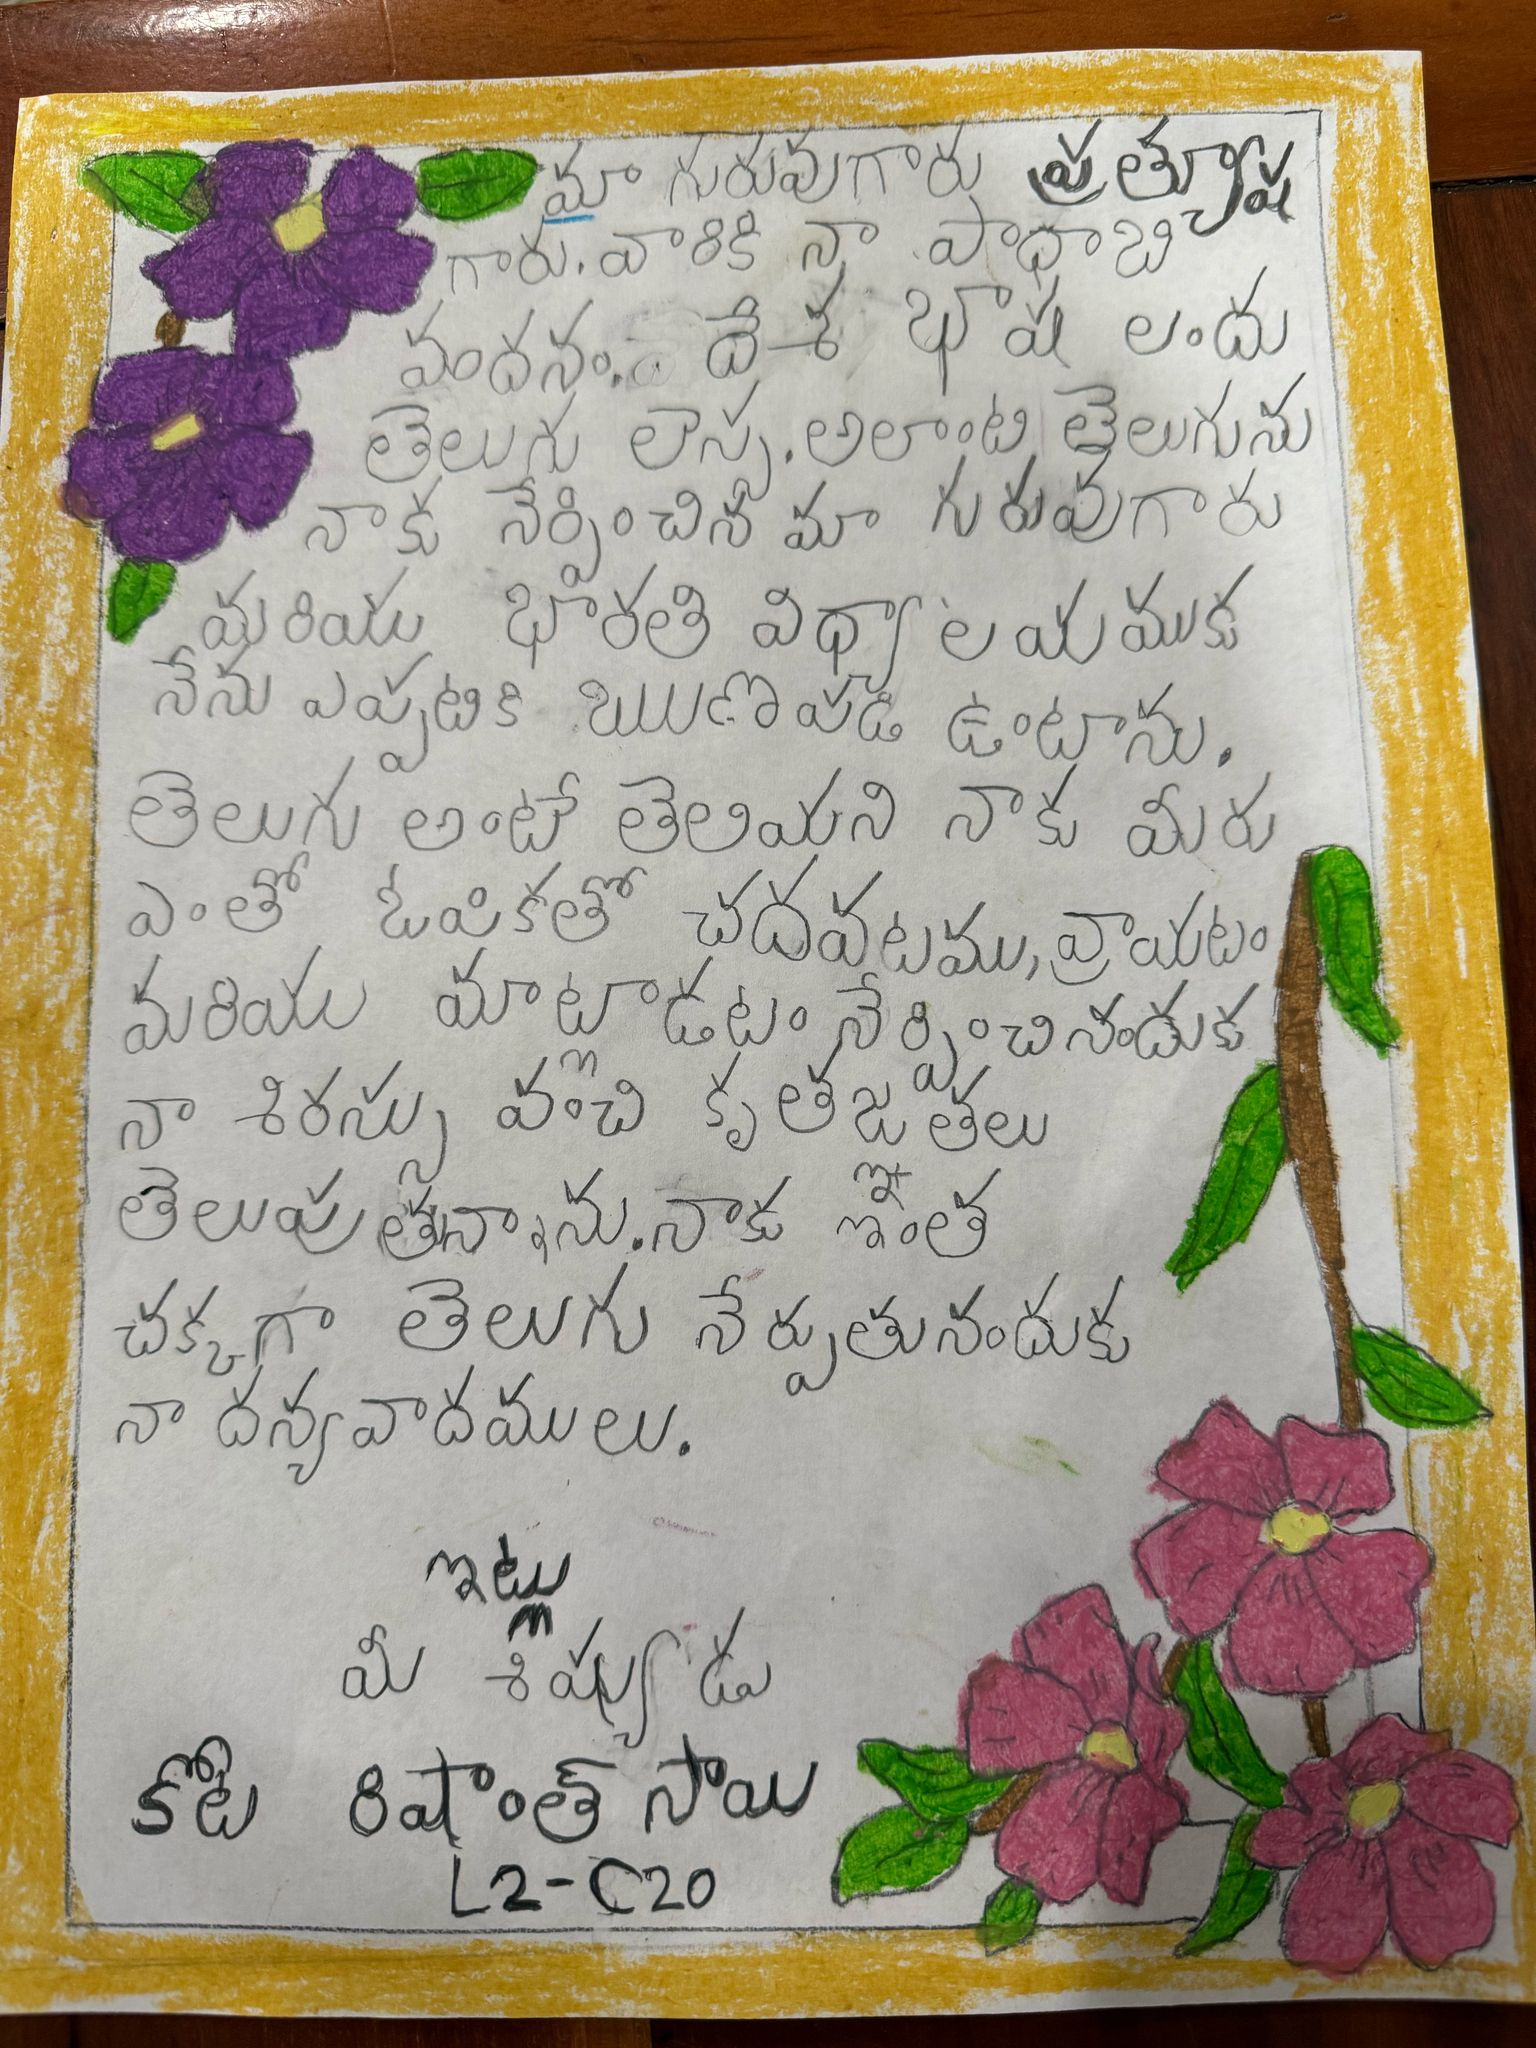 మా గురువుగారు ప్రత్యూష
గారు. వారికి నా పాదాభి
వందనం. దేశ భాష లందు
తెలుగు లాస్స. అలాంటి తెలుగును
నాకు నేర్పించిన మా గురువుగారు
మరియు భారతి విధ్యాలయముకు
నేను ఎప్పటికి ఋణపడి ఉంటాను.
తెలుగు అంటే తెలియని నాకు మీరు
ఎంతో ఓపికతో చదవటము, వ్రాయటం
మరియు మాటాడటం నేర్పించినందుకు
నా శిరస్సు వంచి కృతజ్ఞతలు
తెలుపుతున్నాను. నాకు ఇంత
చక్కగా తెలుగు నేర్పుతునందుకు
నా దన్యవాదములు.
ఇట్లు
మీ శిష్యుడు
కోట రిషాంత్ సాయి
L2-C20